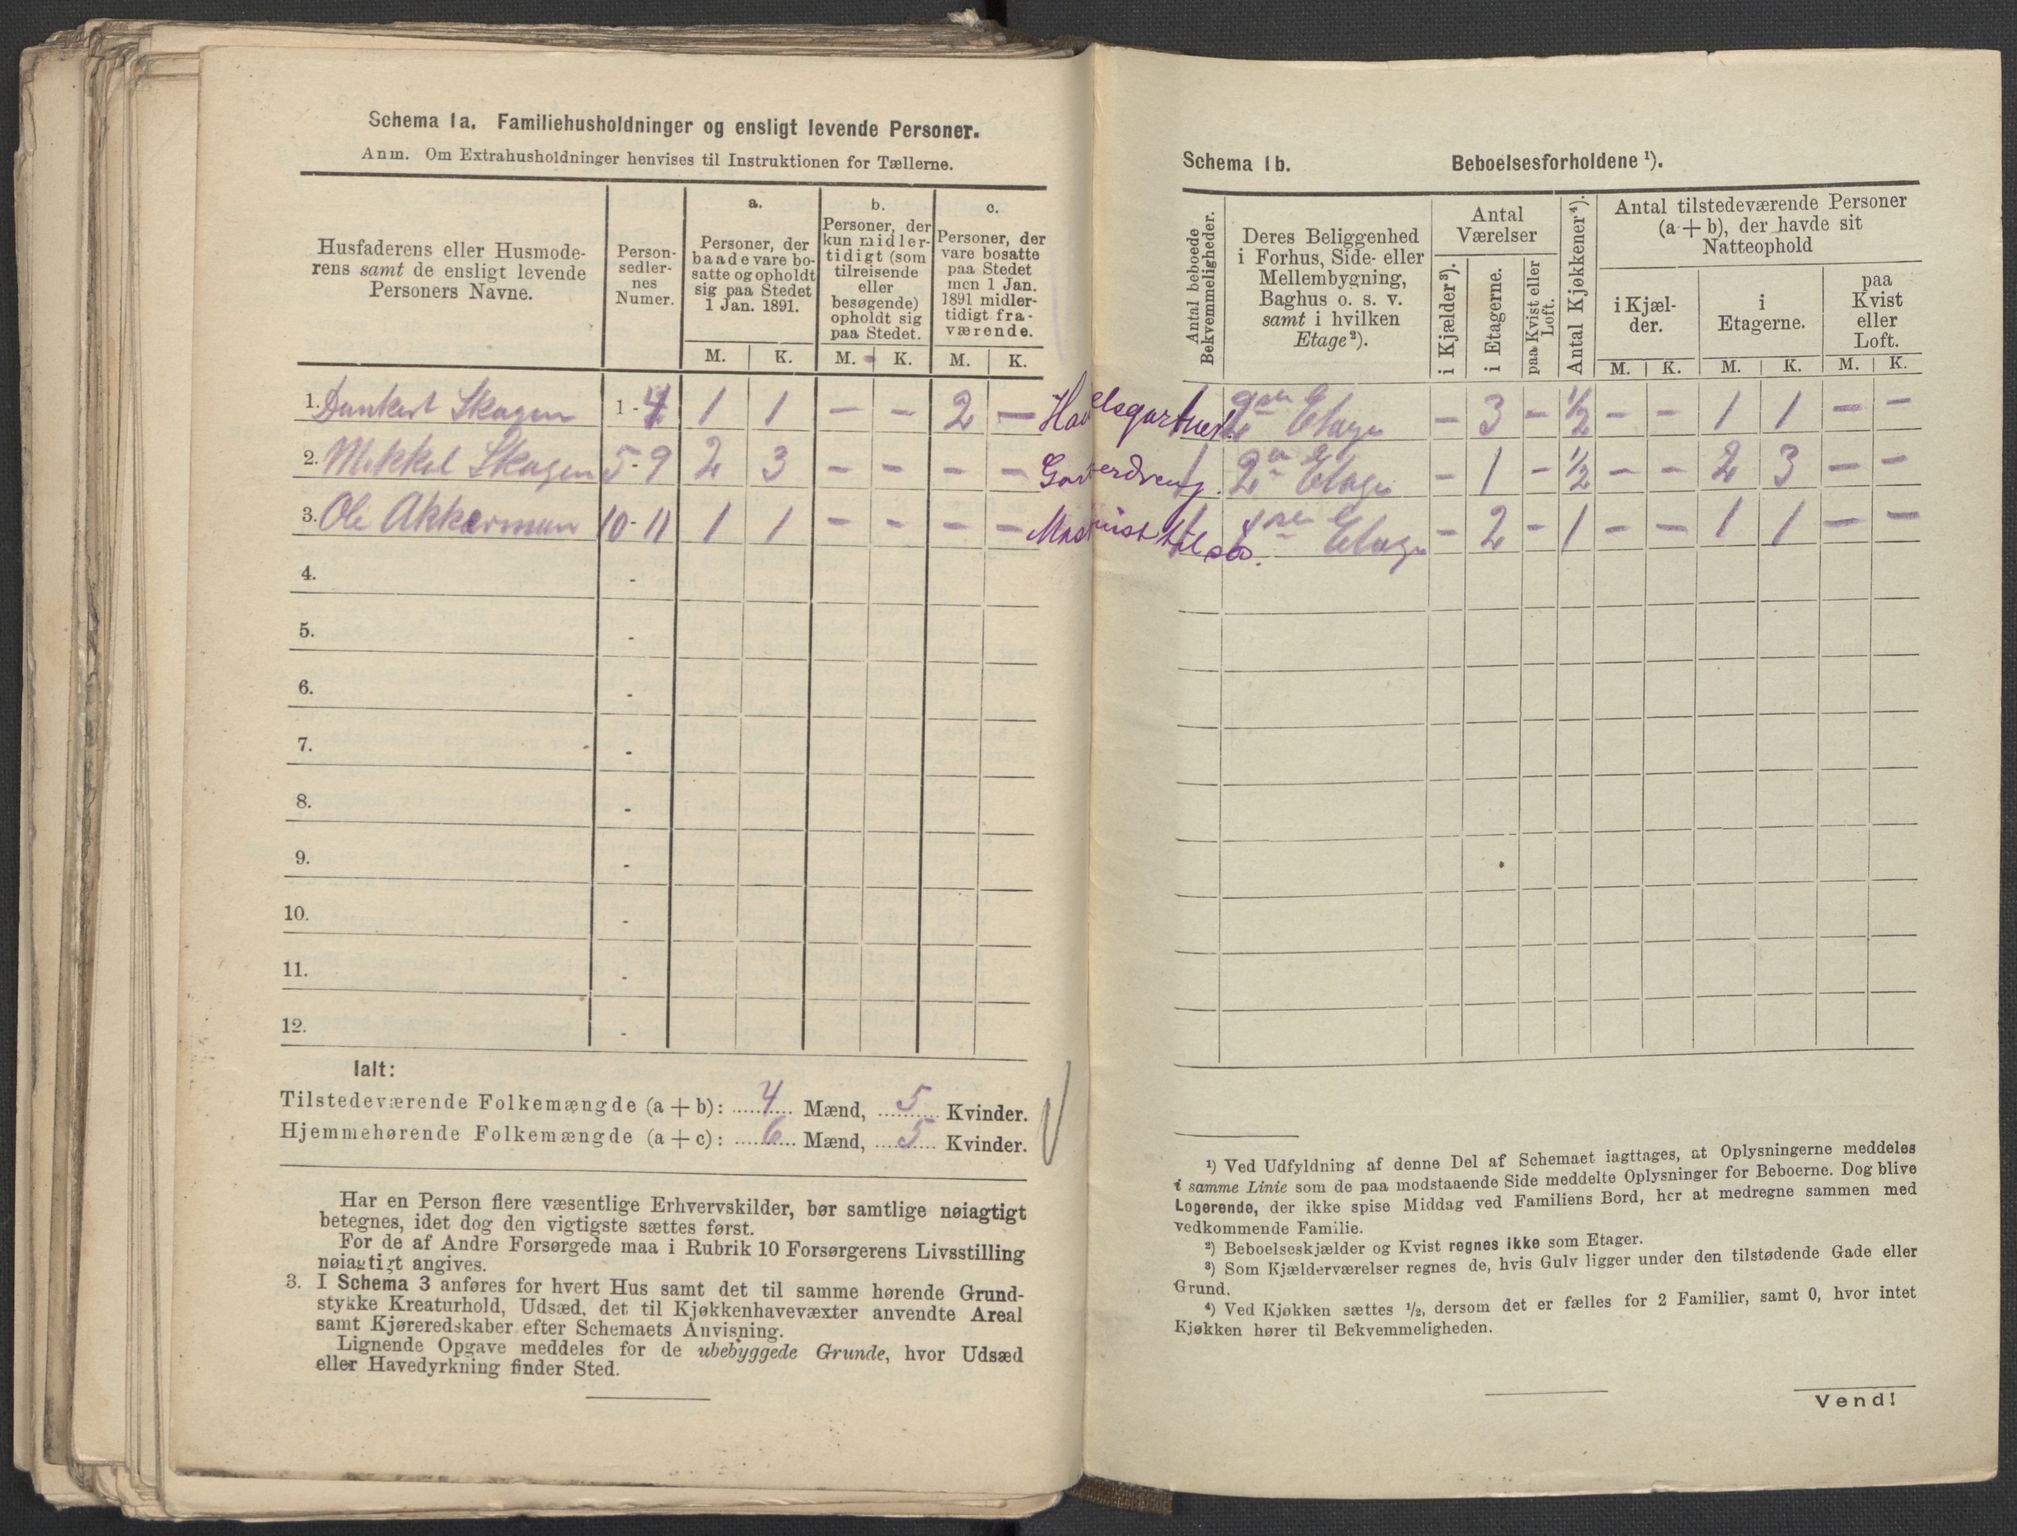 Schema 1a. Familiehusholdninger og ensligt levende Personer.
Anm. Om Extrahusholdninger henvises til Instruktionen for Tællerne.
Husfaderens eller Husmode-
rens samt de ensligt levende
Personers Navne.
Person-
sedler-
nes
Numer.
a.
Personer, der
baade vare bo-
satte og opholdt
sig paa Stedet
1 Jan. 1891.
b.
Personer, der
kun midler-
tidigt (som
tilreisende
eller
besøgende)
opholdt sig
paa Stedet.
c.
Personer, der
vare bosatte
paa Stedet
men 1 Jan.
1891 midler-
tidigt fra-
værende.
M. K. M. K. M. K.
1. Dankert Skagen 1-4 1 1 – – 2 –
2. Mikkel Skagen 5-9 2 3 – – – –
3. Ole Akkerman 10-11 1 1 – – – –
4. -
5. -
6. -
7. -
8. -
9. -
10. -
11. -
12. -
Ialt:
Tilstedeværende Folkemængde (a+b): 4 Mænd, 5 Kvinder.
Hjemmehørende Folkemængde (a+c): 6 Mænd, 5 Kvinder.
Har en Person flere væsentlige Erhvervskilder, bør samtlige nøiagtigt
betegnes, idet dog den vigtigste sættes først.
For de af Andre Forsørgede maa i Rubrik 10 Forsørgerens Livsstilling
nøiagtigt angives.
3. I Schema 3 anføres for hvert Hus samt det til samme hørende Grund-
stykke Kreaturhold, Udsæd, det til Kjøkkenhavevæxter anvendte Areal
samt Kjøreredskaber efter Schemaets Anvisning.
Lignende Opgave meddeles for de ubebyggede Grunde, hvor Udsæd
eller Havedyrkning finder Sted.
Schema 1b. Beboelsesforholdene ¹).
Antal beboede
Bekvemmeligheder.
Deres Beliggenhed
i Forhus, Side- eller
Mellembygning,
Baghus o. s. v.
samt i hvilken
Etage²).
Antal
Værelser
i Kjælder³).
i Etagerne.
paa Kvist eller
Loft.
Antal Kjøkkener⁴).
Antal tilstedeværende Personer
(a+b), der havde sit
Natteophold
i Kjæl-
der.
i
Etagerne.
paa
Kvist
eller
Loft.
M. K. M. K. M. K.
2den Etage – 3 – ½ – – 1 1 – –
1 2den Etage – 1 – ½ – – 2 3 – –
Etage – 2 – 1 – – 1 1 – –
¹) Ved Udfyldning af denne Del af Schemaet iagttages, at Oplysningerne meddeles
i samme Linie som de paa modstaaende Side meddelte Oplysninger for Beboerne. Dog blive
Logerende, der ikke spise Middag ved Familiens Bord, her at medregne sammen med
vedkommende Familie.
²) Beboelseskjælder og Kvist regnes ikke som Etager.
³) Som Kjælderværelser regnes de, hvis Gulv ligger under den tilstødende Gade eller
Grund.
⁴) Ved Kjøkken sættes ½, dersom det er fælles for 2 Familier, samt 0, hvor intet
Kjøkken hører til Bekvemmeligheden.
Vend!